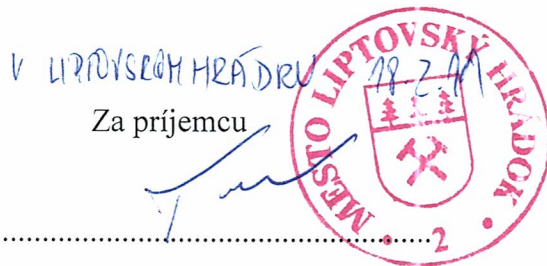 V LIPTOVSKOM HRÁDKU 18.2.
Za príjemcu
MESTO LIPTOVSKÝ HRÁDOK • 2 •